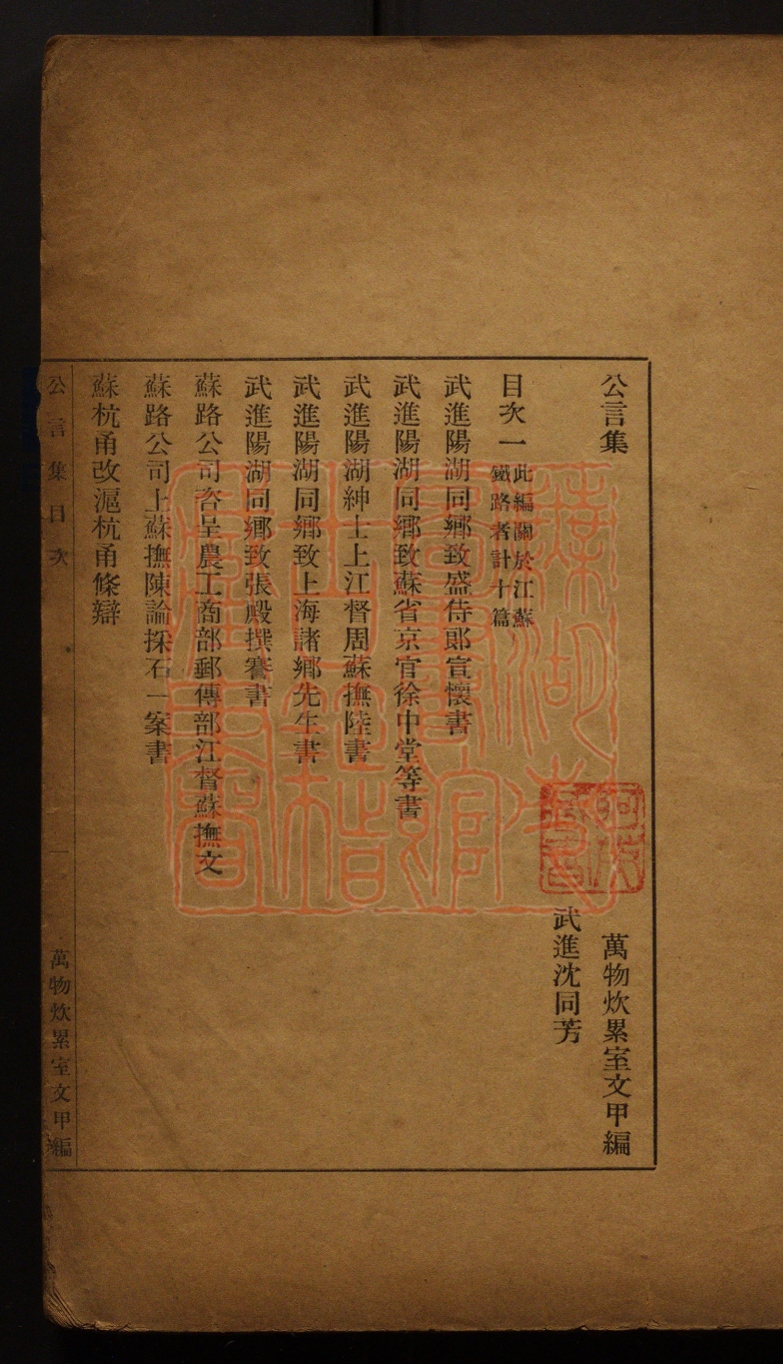 公言集
萬物炊累室文甲編
武進沈同芳
目次一 此編關於江蘇
鐵路者計十篇
武進陽湖同鄉致盛侍郎宣懷書
武進陽湖同鄉致蘇省京官徐中堂等書
武進陽湖紳士上江督周蘇撫陸書
武進陽湖同鄉致上海諸鄉先生書
武進陽湖同鄉致張殿撰謇書
蘇路公司咨呈農工商部郵傳部江督蘇撫文
蘇路公司上蘇撫陳論採石一案書
蘇杭甬改滬杭甬條辯
公言集目次
一
萬物炊累室文甲編